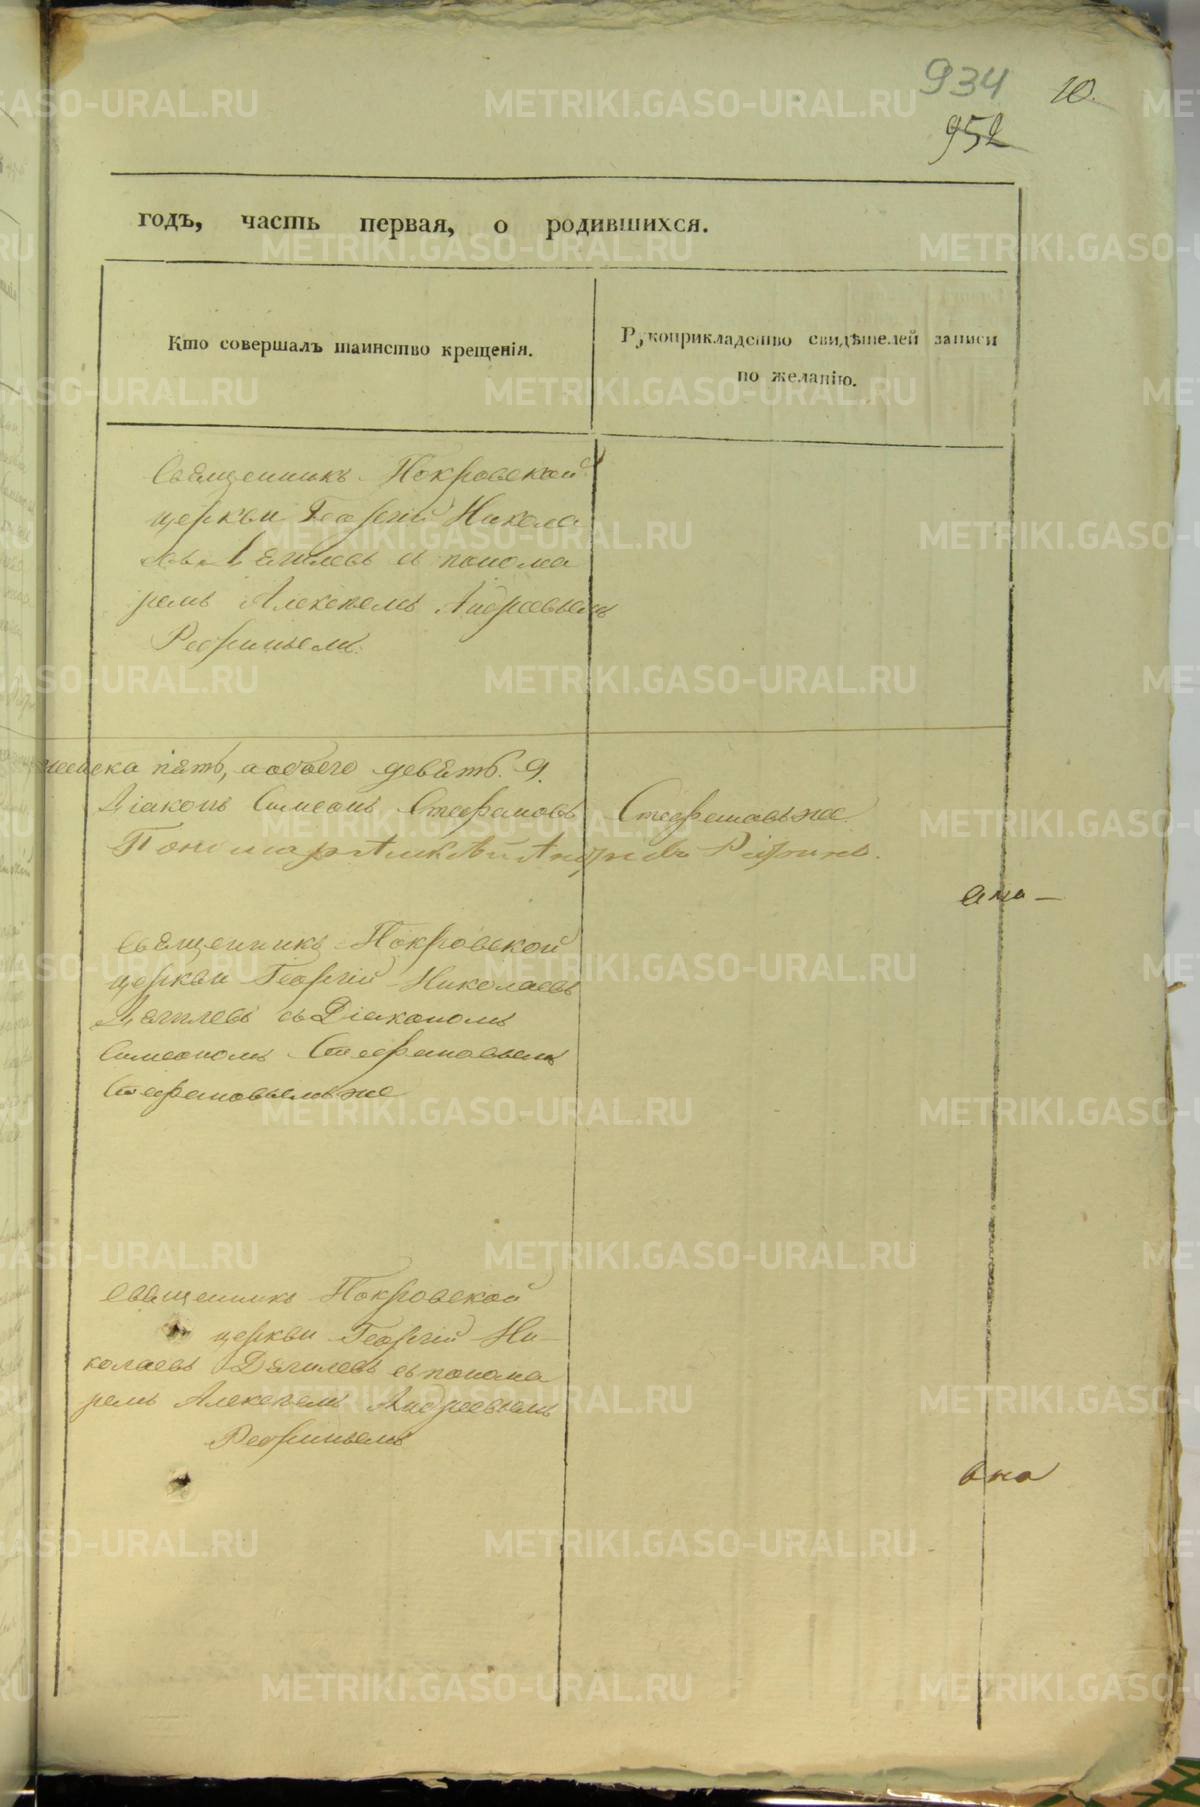 934
10.
952
годъ, часть первая, о родившихся.
Кто совершалъ таинство крещенія.
Рукоприкладство свидѣтелей записи
по желанію.
Священникъ Покровской
церкви Георгій Никола
евъ Дягилевъ съ понома
ремъ Алексѣемъ Андреевымъ
Рефинымъ.
женска пять, а обоего девять. 9.
Діаконъ Симеонъ Стефановъ Стефановъ же.
Пономарь Алексѣй Андреевъ Рефинъ.
Священникъ Покровской
церкви Георгій Николаевъ
Дягилевъ съ Діакономъ
Симеономъ Стефановымъ
Стефановымъ же
Священникъ Покровской
церкви Георгій Ни-
колаевъ Дягилевъ съ понома
ремъ Алексѣемъ Андреевымъ
Рефинымъ
METRIKI.GASO-URAL.RU